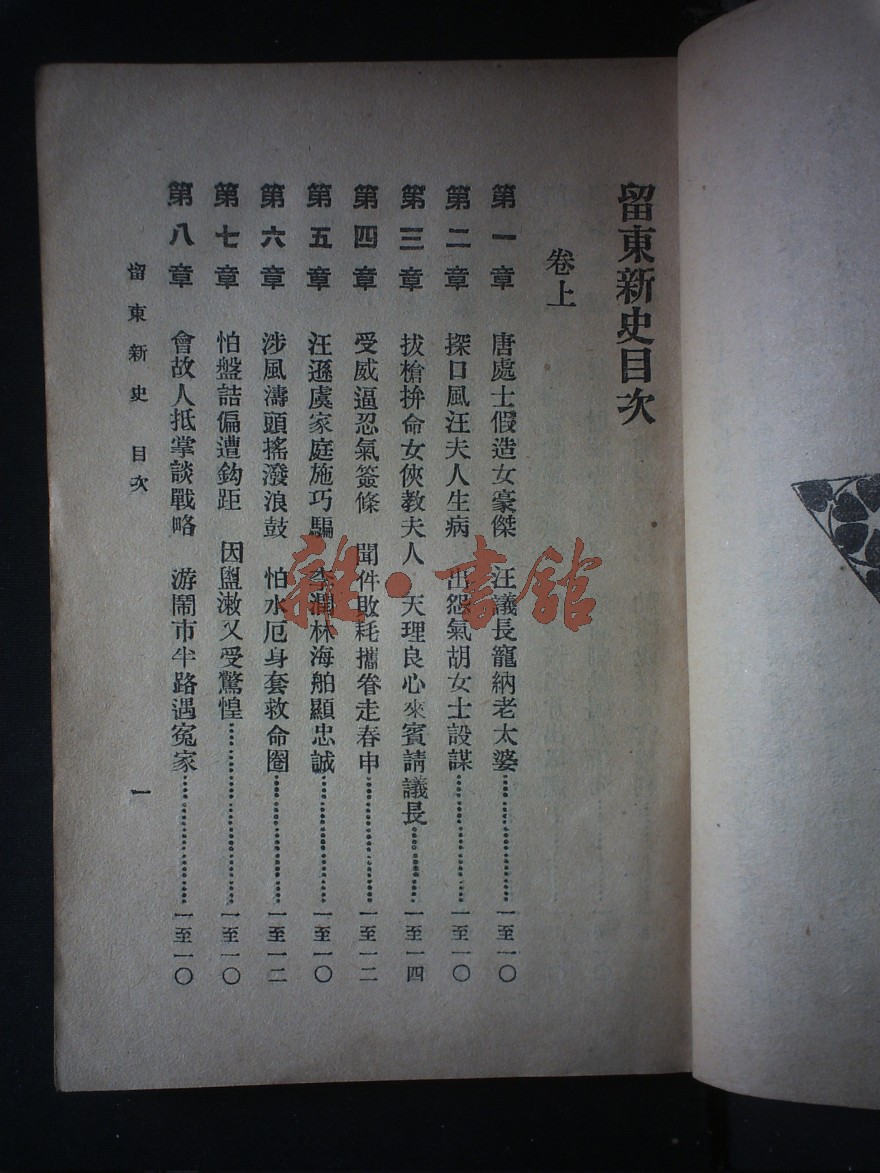 留東新史目次
卷上
第一章 唐處士假造女豪傑 汪議長寵納老太婆…………一至一〇
第二章 探口風汪夫人生病 出怨氣胡女士設謀…………一至一〇
第三章 拔槍拚命女俠教夫人 天理良心來賓請議長…………一至一四
第四章 受威逼忍氣簽條件 聞敗耗攜眷走春申…………一至一二
第五章 汪遜虞家庭施巧騙 李潤林海舶顯忠誠…………一至一〇
第六章 涉風濤頭搖潑浪鼓 怕水厄身套救命圈…………一至一二
第七章 怕盤詰偏遭鈎距 因盥漱又受驚惶…………一至一〇
第八章 會故人抵掌談戰略 游鬧市半路遇冤家…………一至一〇
留東新史 目次 一
雜·書館